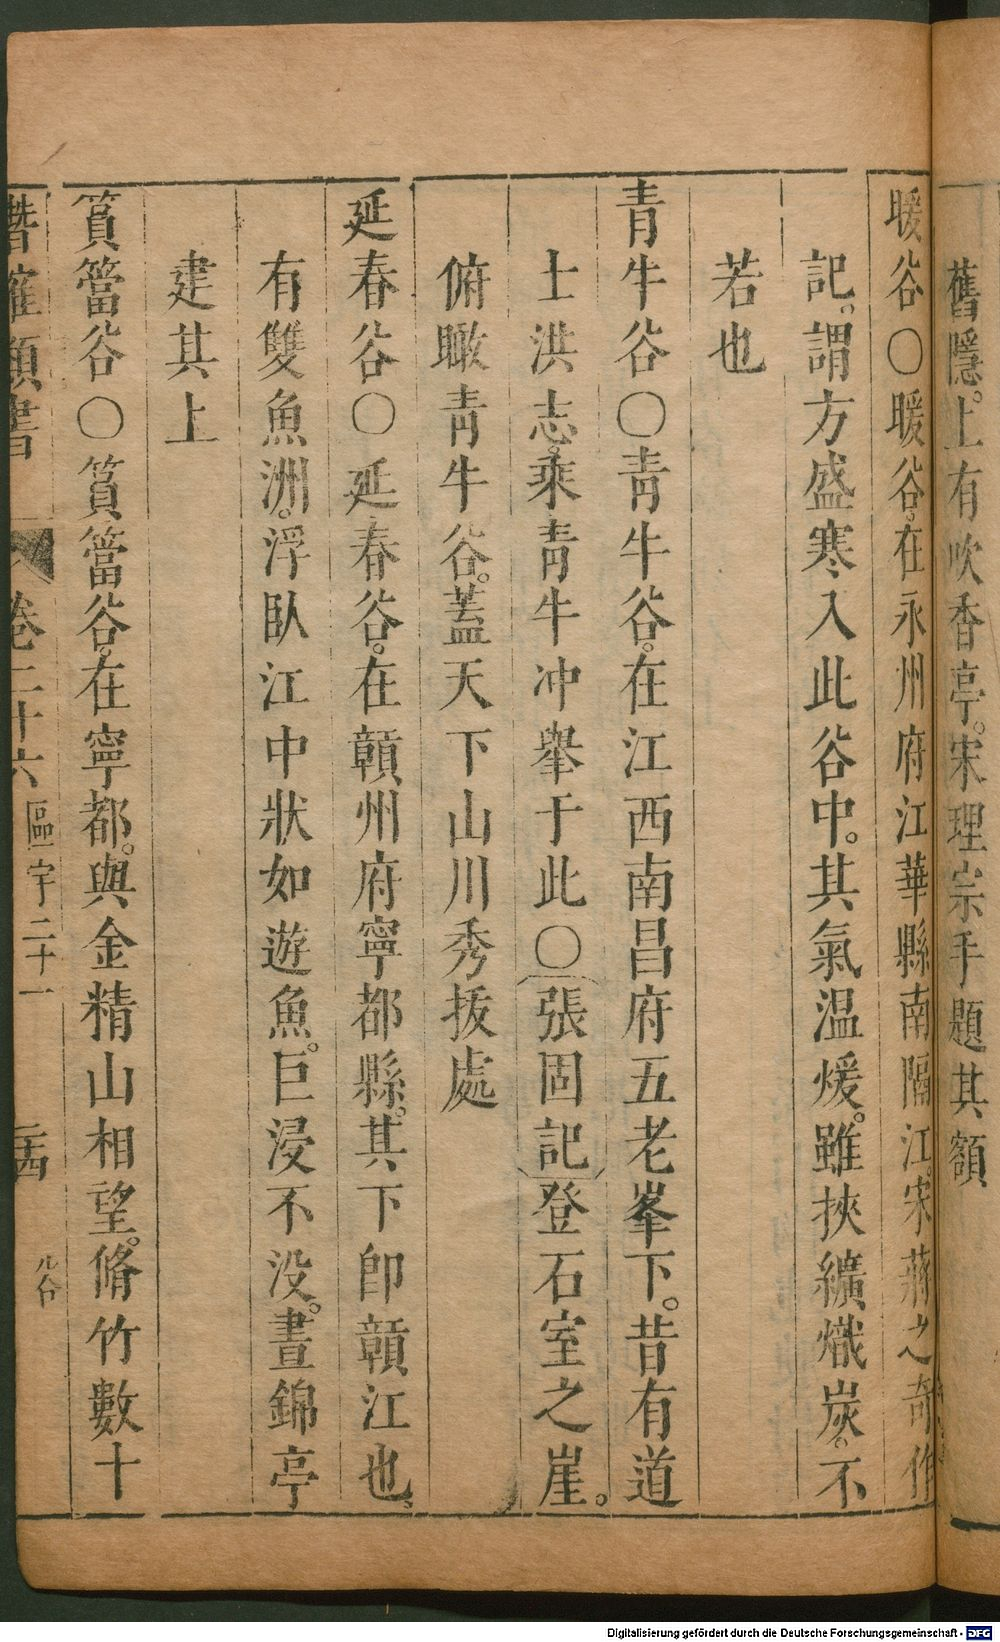 舊隱。上有吹香亭。宋理宗手題其額
暖谷○暖谷。在永州府江華縣南隔江。宋蔣之奇作
記。謂方盛寒入此谷中。其氣溫煖。雖挾纊熾炭。不
若也
青牛谷○靑牛谷。在江西南昌府五老峯下。昔有道
士洪志。乘靑牛冲舉于此○張固記登石室之崖。
俯瞰靑牛谷。蓋天下山川秀拔處
延春谷○延春谷。在贛州府寧都縣。其下卽贛江也。
有雙魚洲。浮臥江中狀如遊魚。巨浸不没。晝錦亭
建其上
篔簹谷○篔簹谷。在寧都。與金精山相望。脩竹數十
潛確類書 卷二十六 區宇二十一